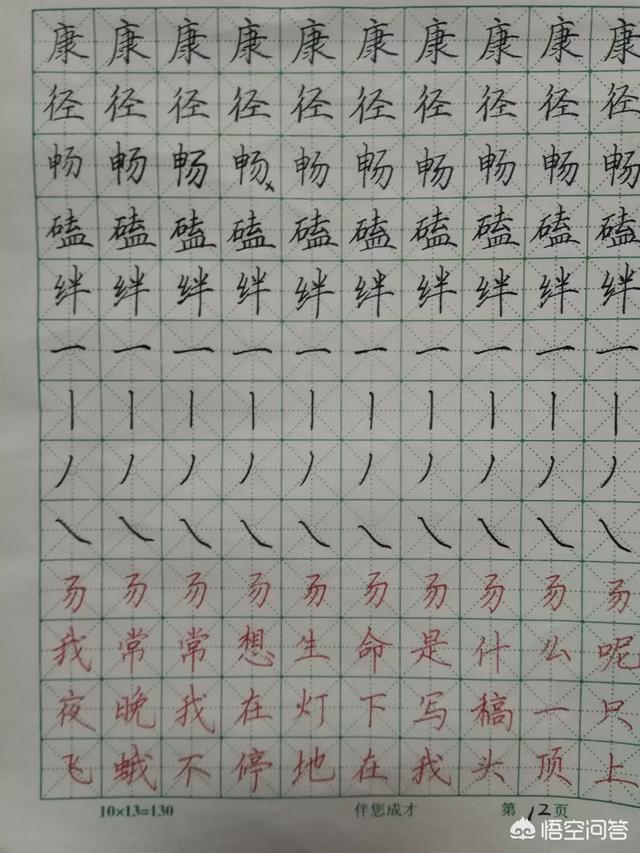 康康康康康康康康康康
径径径径径径径径径径
畅畅畅畅畅畅畅畅畅畅
磕磕磕磕磕磕磕磕磕磕
绊绊绊绊绊绊绊绊绊绊
一一一一一一一一一一
丨丨丨丨丨丨丨丨丨丨
丿丿丿丿丿丿丿丿丿丿
㇏㇏㇏㇏㇏㇏㇏㇏㇏㇏
易易易易易易易易易易
我常常想生命是什么呢
夜晚我在灯下写稿一只
飞蛾不停地在我头顶上
10×13=130 伴您成才 第12页
悟空问答